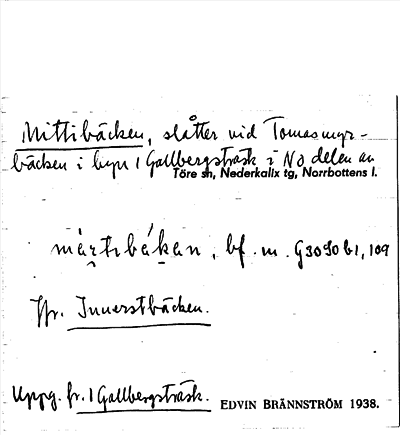 Mittibäcken, slåtter vid Tomasmyr-
bäcken i byn 1 Gallbergsträsk i NO delen av
Töre sn, Nederkalix tg, Norrbottens l.
bf. m. G3090b1, 109
Jfr. Innerstbäcken.
Uppg. fr. 1 Gallbergsträsk. EDVIN BRÄNNSTRÖM 1938.